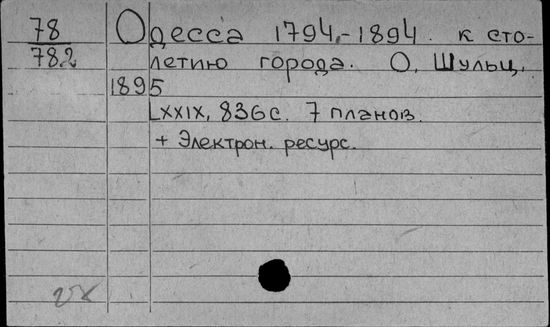 78 Одесса 1794-1894. к сто-
782 летию города. О, Шульц,
1895
LXXIX, 836 с. 7 планов.
+ Электрон. ресурс.